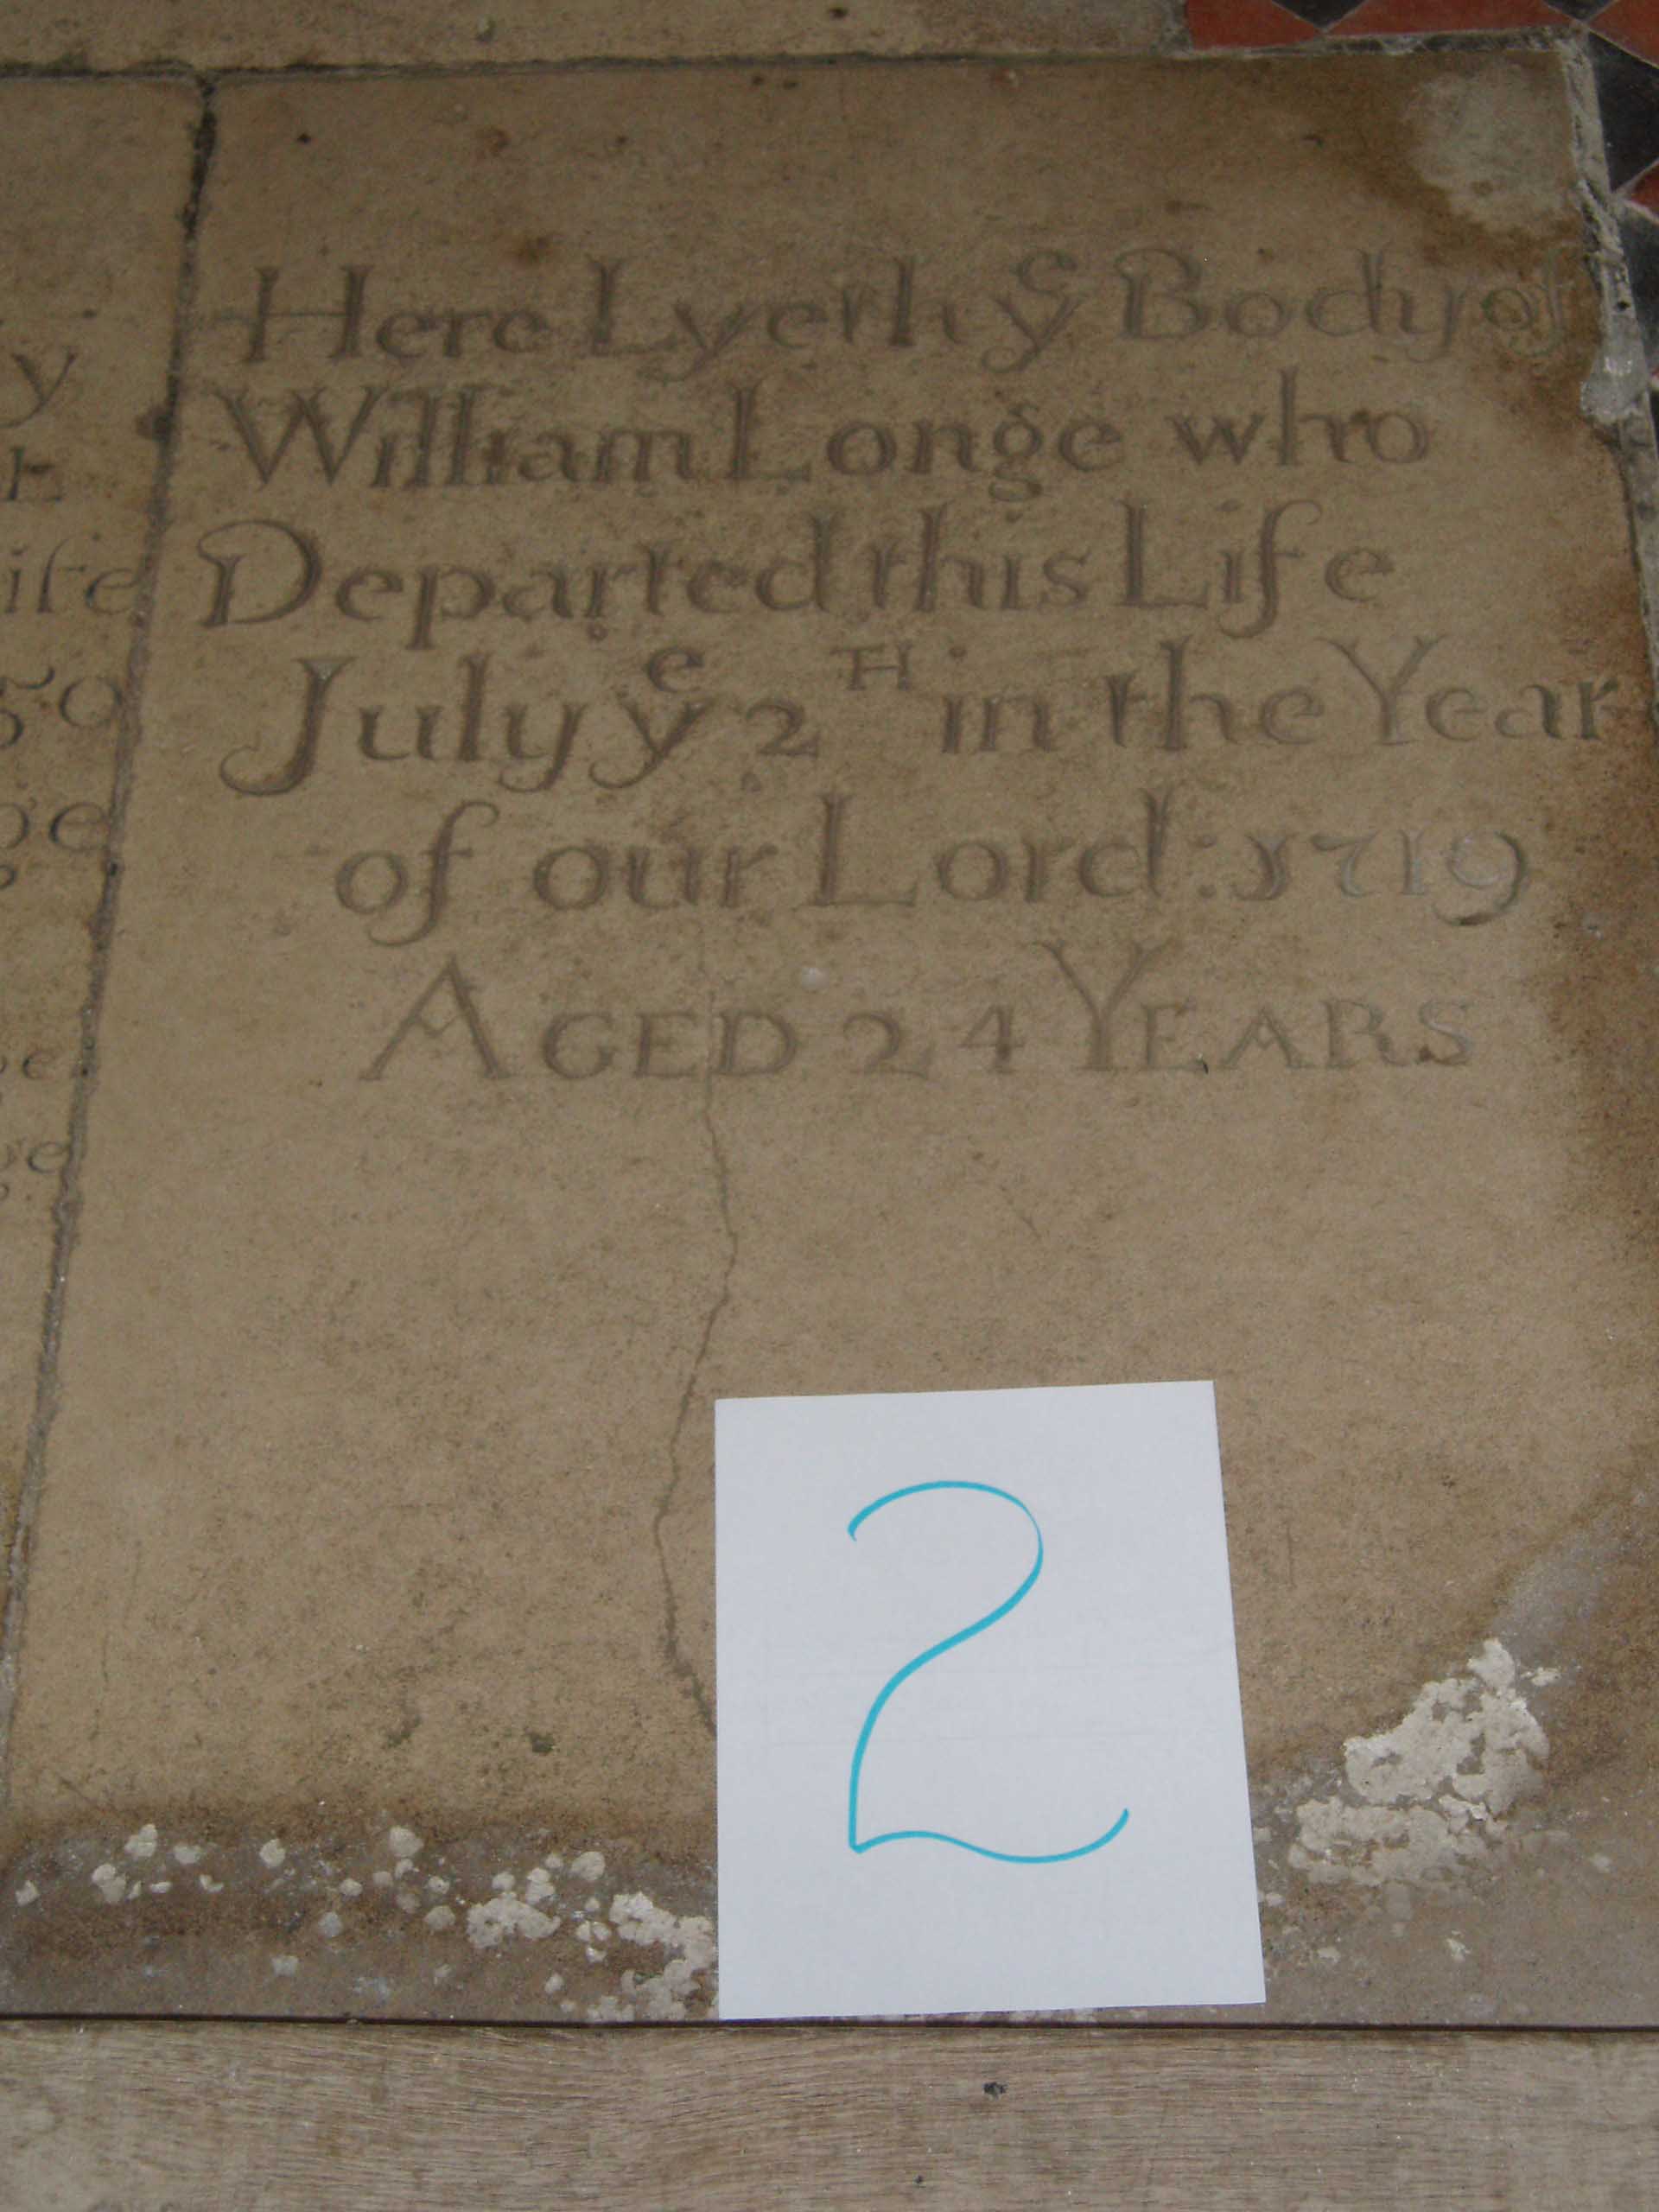 Here Lyeth yᵉ Body of
William Longe who
Departed this Life
July yᵉ 2ᵀᴴ in the Year
of our Lord: 1719
AGED 24 YEARS
2